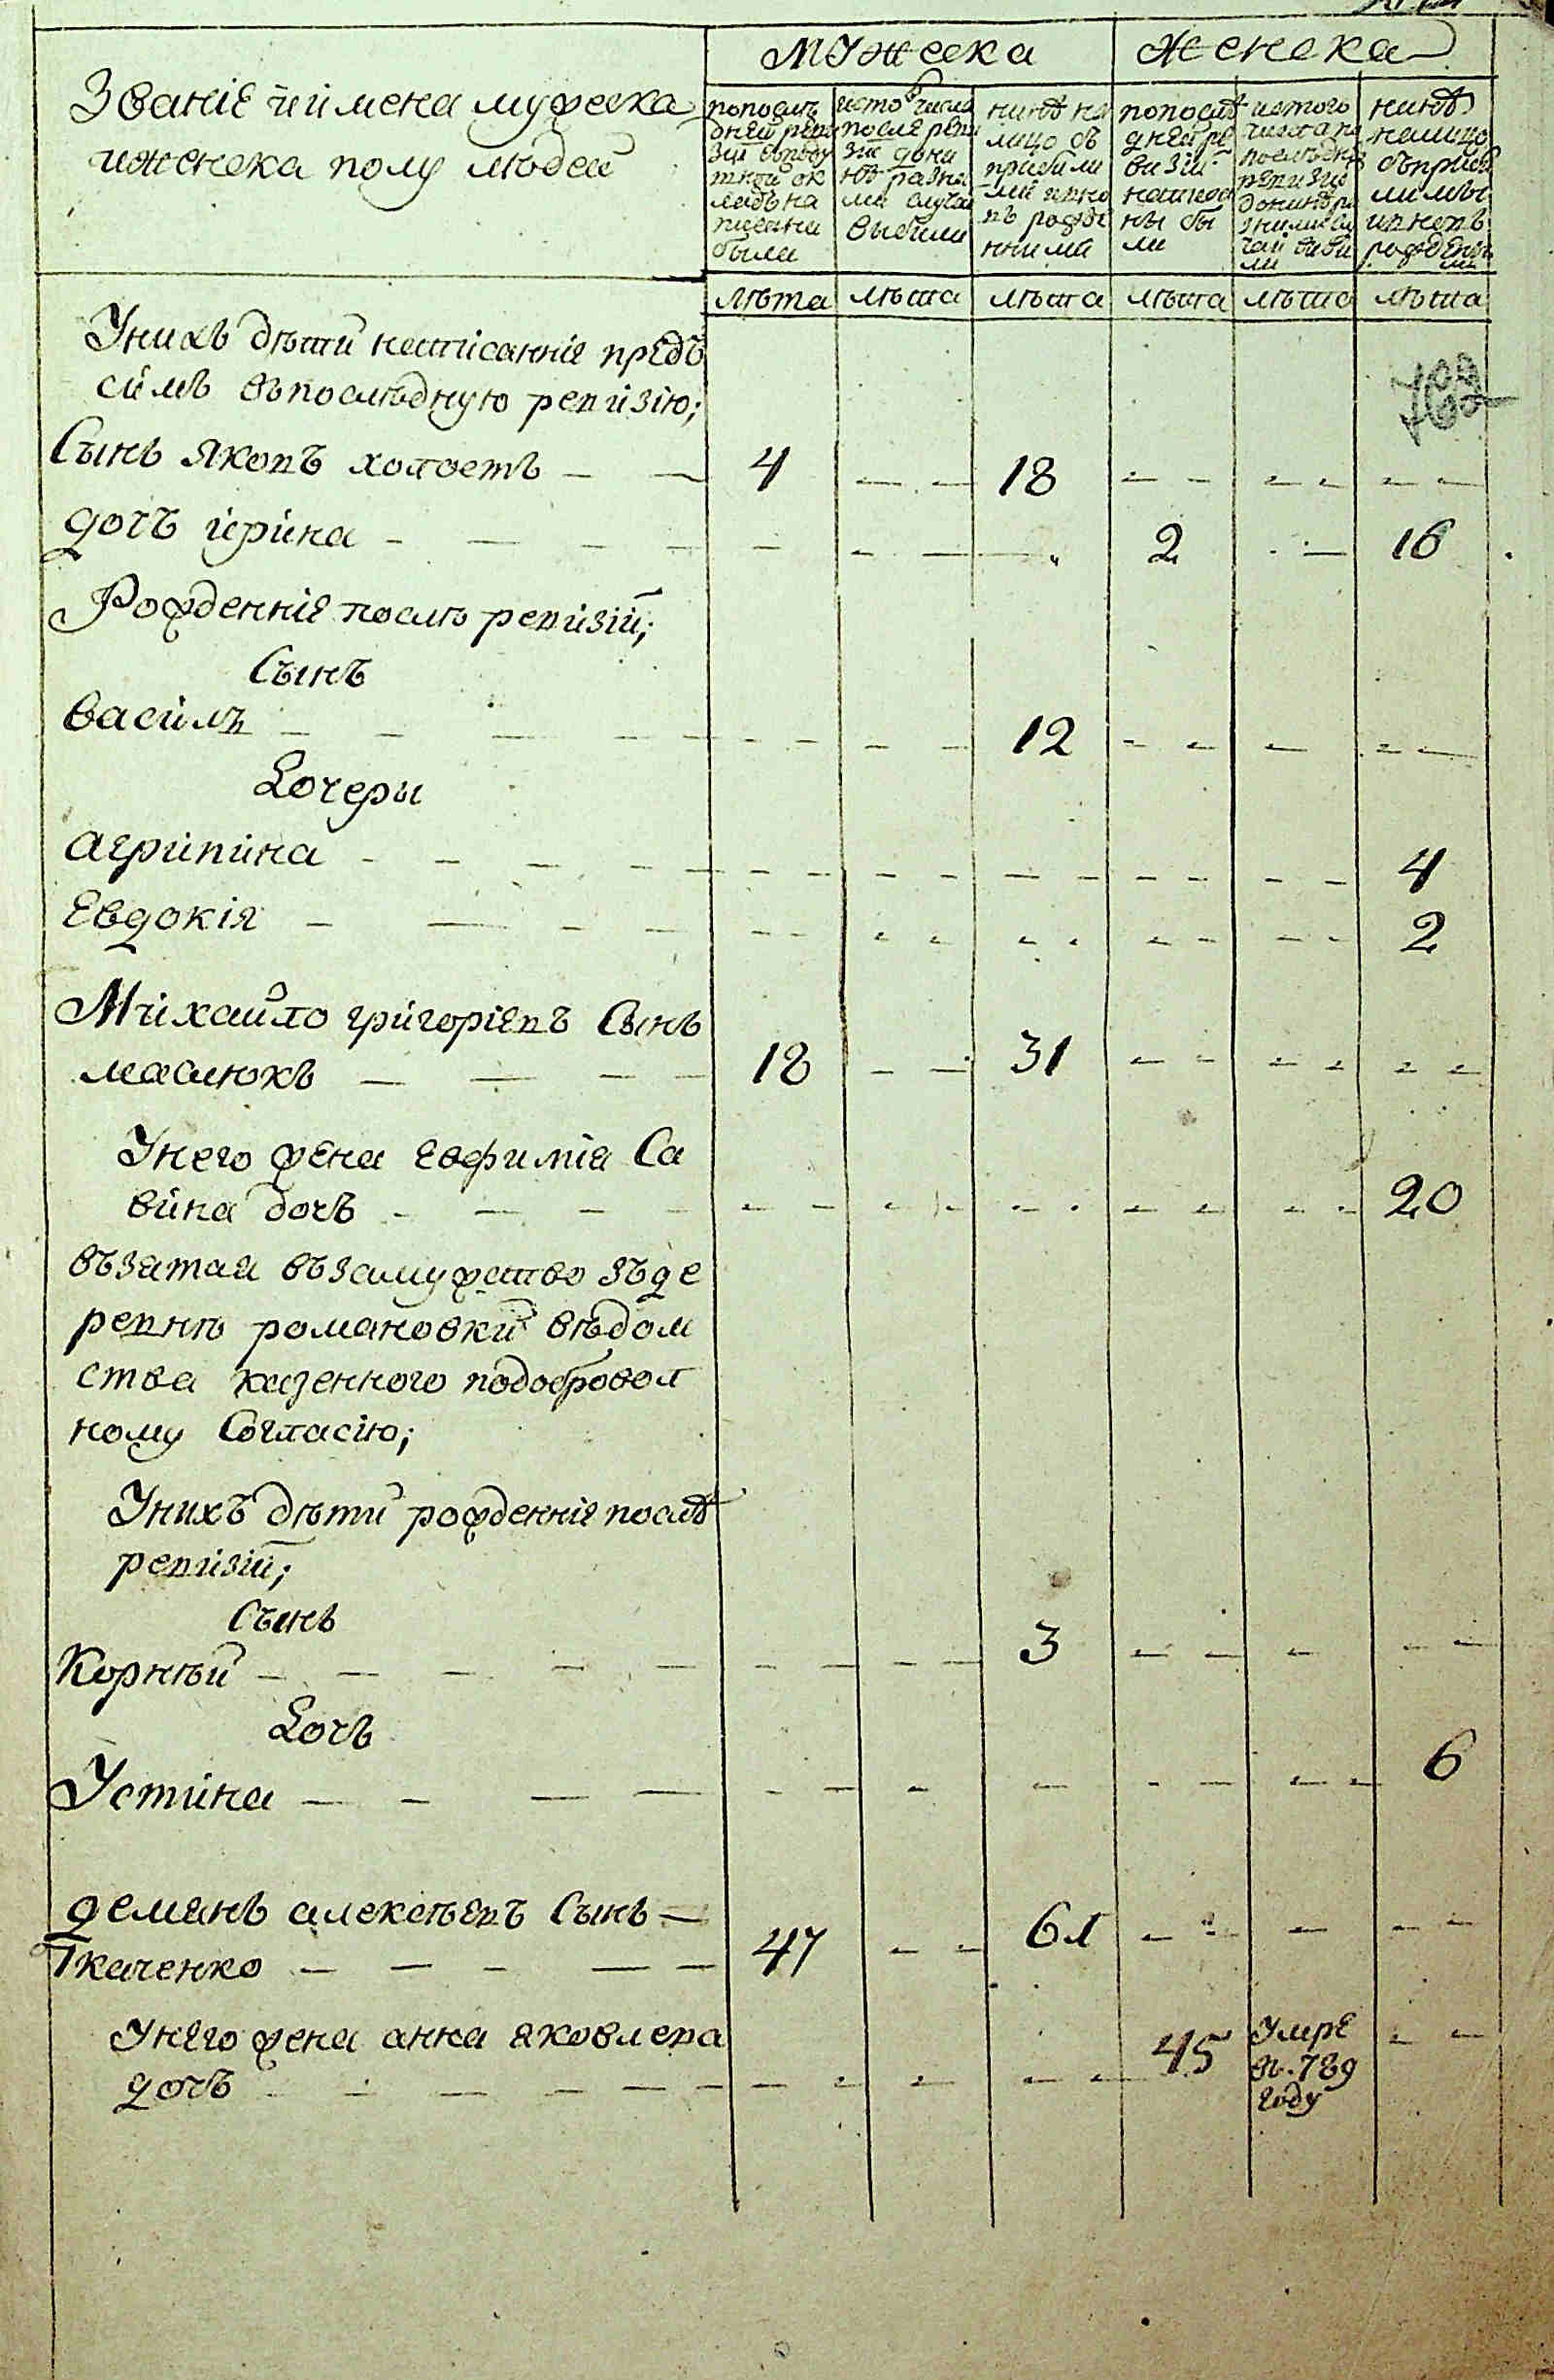 мужеска женска
Званіе и имена мужеска
иженска полу людей
попослѣ
дней реви
зіи вподу
шной ок
ладъ на
писани
были
исто числа
после реви
зіи дони
нѣ разни
ми случаи
выбыли
нинѣ на
лицо съ
прибили
ми и вно
въ рожде
нними
попослѣ
дней ре
визіи
написа
ны бы
ли
истого
числа по
послѣдней
ревизіи
нинѣ
налицо
съприбы
лимы
ивновъ
рожденни
ми
лѣта лѣта лѣта лѣта лѣта лѣта
Унихъ дѣти написанніе предъ
симъ въпослѣдную ревизію;
Сынъ Яковъ холостъ — — 4 — — 18 — — — — — —
дочъ ирина — — — — — — — — 2 — 16
Рожденніе послѣ ревизіи;
Сынъ
василь — — — — — — — — 12 — — — — —
Дочеры
агрипина — — — — — — — — — — — — — — 4
Евдокія — — — — — — — — — — — — — — 2
Михайло григоріевъ Сынъ
маслюкъ — — — — 18 — — 31 — — — — — —
Унего жена евфимія Са
вина дочъ — — — — — — — — — — — — — — 20
възятая възамужство зъде
ревнѣ романовки вѣдом
ства казенного подобровол
ному Согласію;
Унихъ дѣти рожденніе послѣ
ревизіи;
Сынъ
Корнѣй — — — — — — — — — 3 — — — — —
Дочъ
Устина — — — — — — — — — — — — 6
демянъ алексѣевъ Сынъ —
Ткаченко — — — — — 47 — — 61 — — — — —
Унего жена анна яковлева
дочъ — — — — — — — — — — 45 Умре — —
въ 789
году